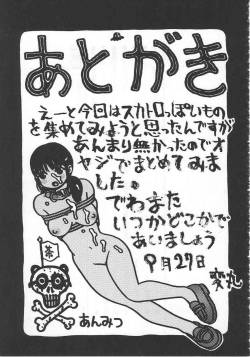 あとがき
えーと今回はスカトロっぽいもの
を集めてみようと思ったんですが
あんまり無かったのでオ
ヤジでまとめてみま
した。
でわまた
いつかどこかで
あいましょう
9月27日
あんみつ